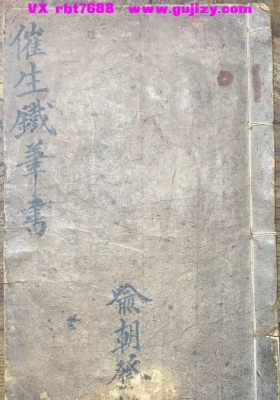 VX rbt7688  www.gujizy.com
催生鐵筆書
俞朝發